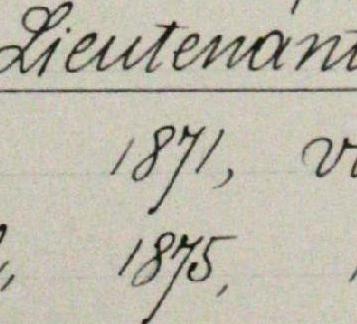 Lieutenant
1871,
1875,